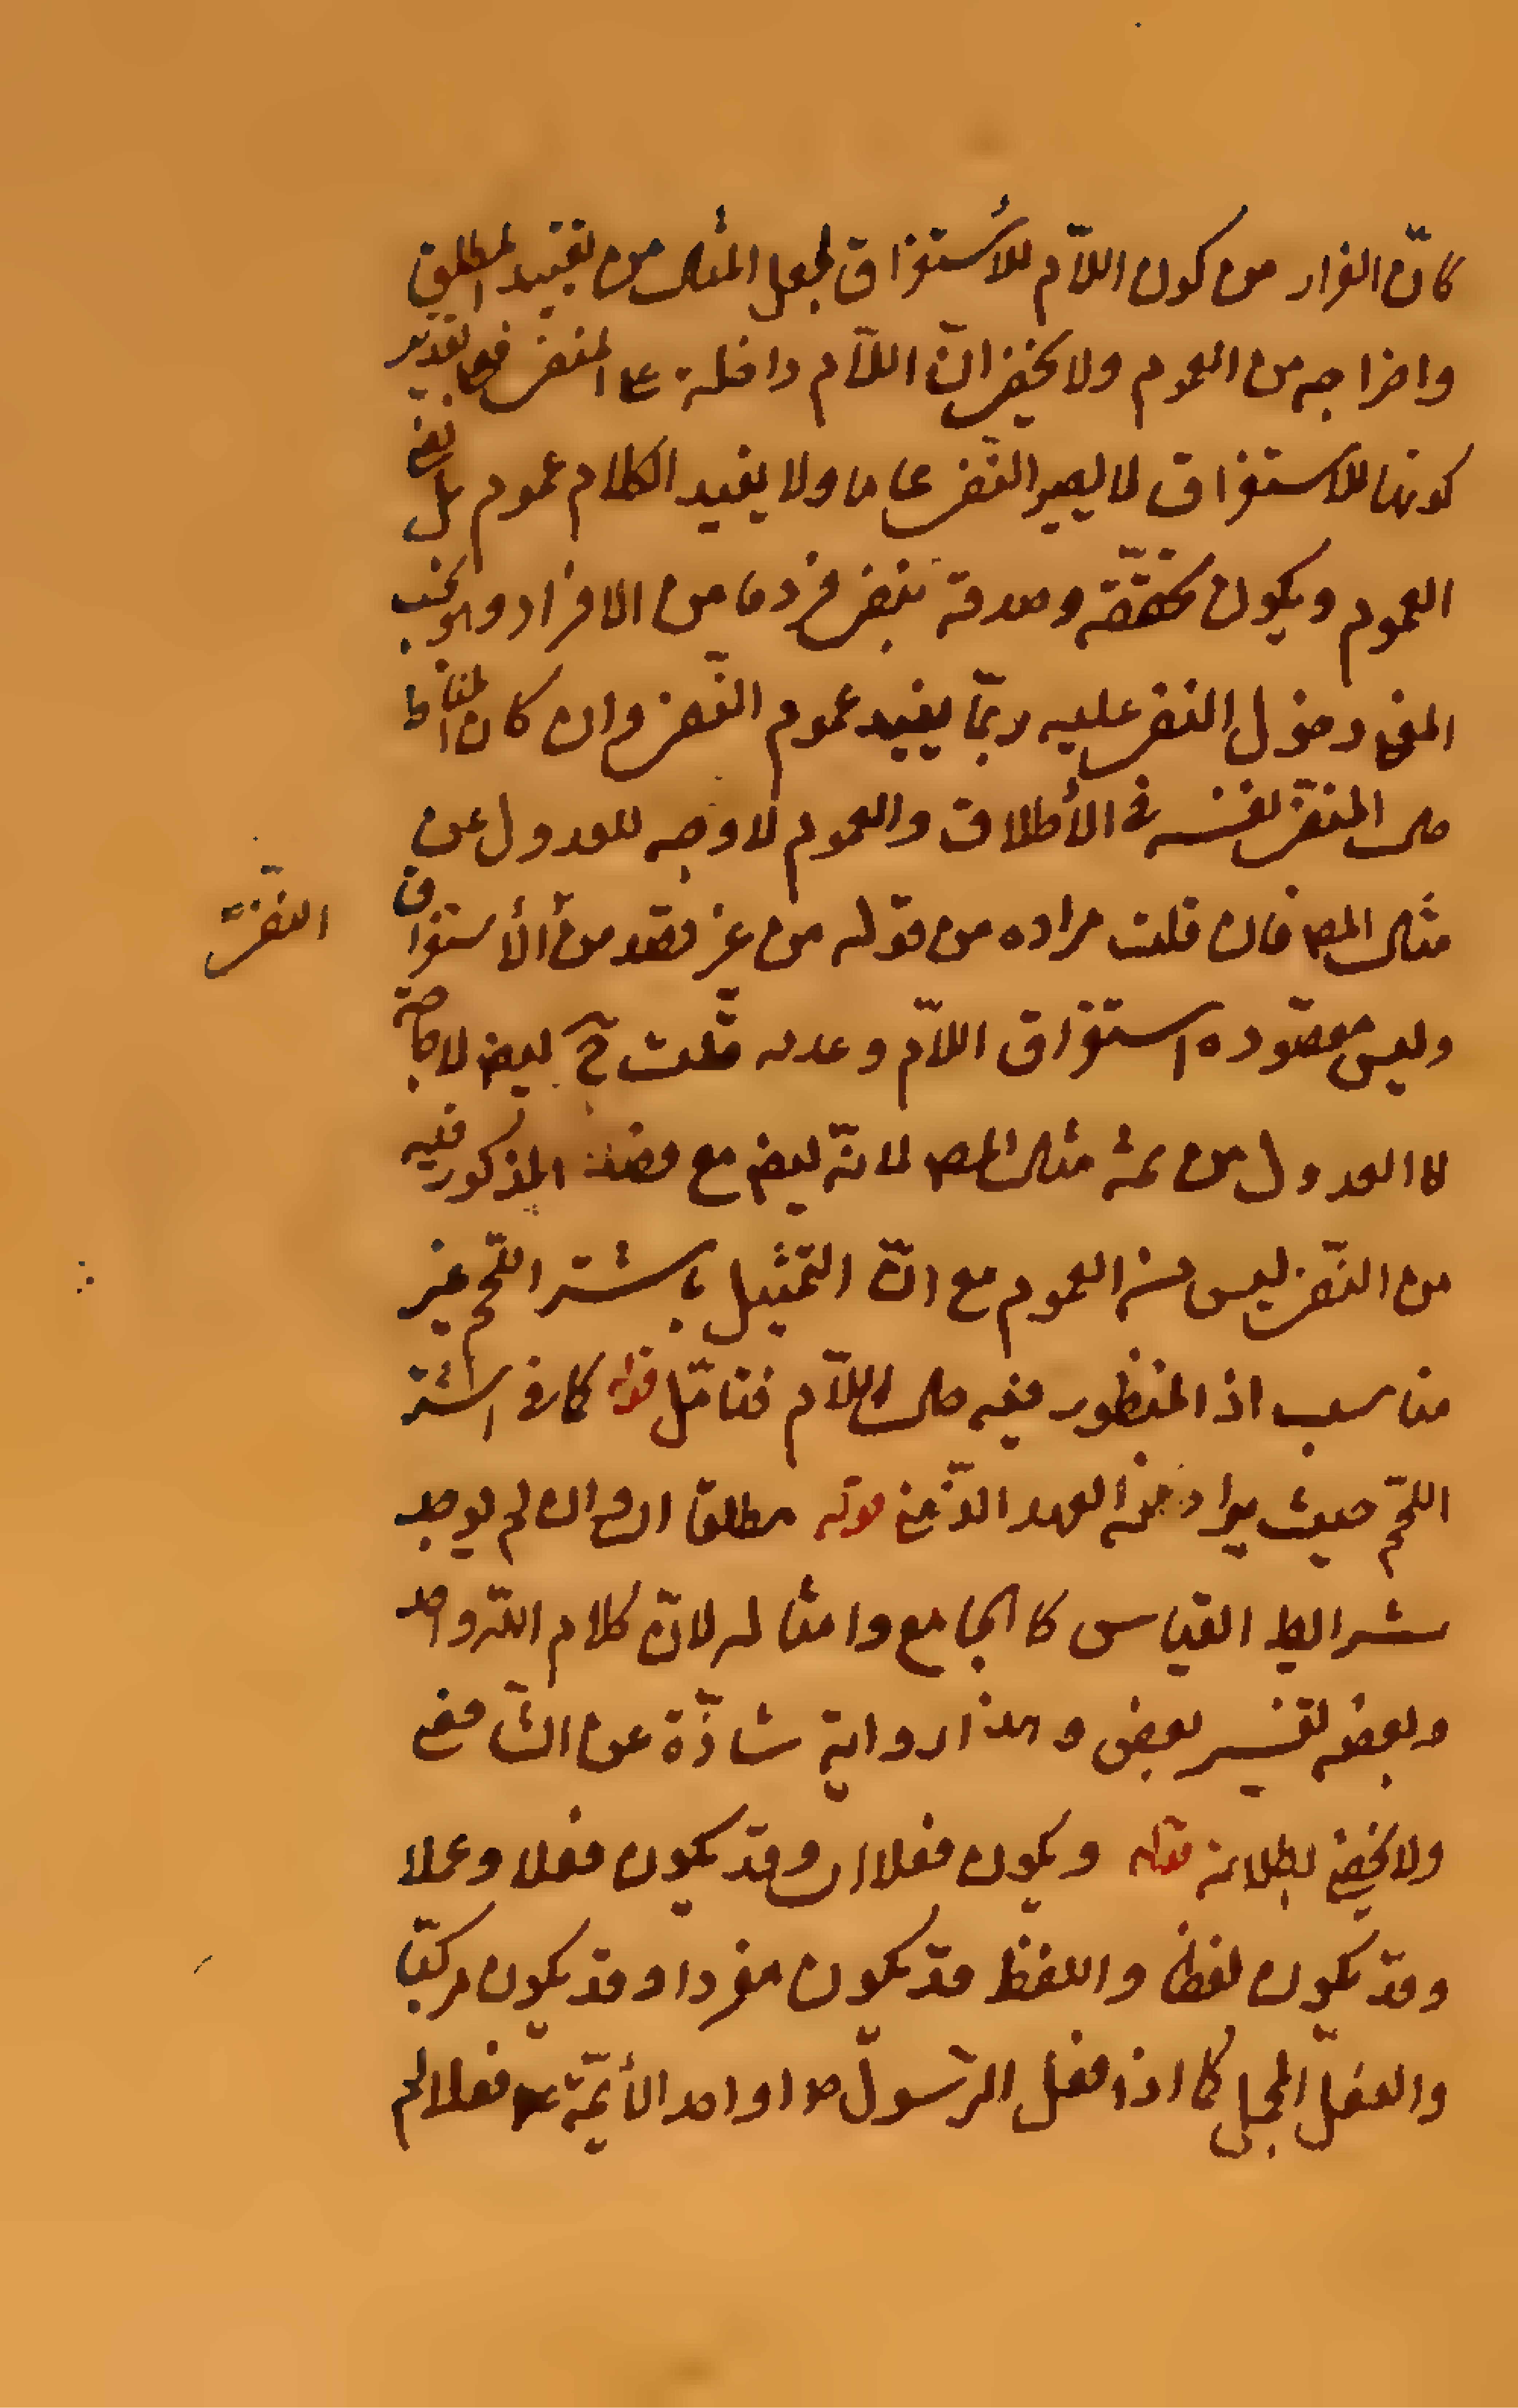 كانّ الفرار من كون اللّام للأستغراق لجعل المثال من تقييد المطلق
واخراجه من العموم ولا يخفى انّ اللّام داخلة على المنفى فعلى تقدير
كونها للاستغراق لا يصير النّفى عاما ولا يفيد الكلام عموم نفى بل
العموم ويكون تحقّقه وصدقه بنفى فرد ما من الافراد
المنفى دخول النفى عليه ربّما يفيد عموم النّفى وان كان
حال المنفىّ نفسه فى الأطلاق والعموم لا وجه للعدول عن
مثال المص فان قلت مراده من قوله من غير قصد من الأستغراق
وليس مقصوده استغراق اللّام وعدمه قلت ح ايضا لا حاجة
لا العدول من مثال المص لانّه ايضا مع المذكور فيه
من النّفى ليس العموم مع انّ التّمثيل باشتر اللّحم غير
مناسب اذ المنظور فيه حال اللّام فتامّل قوله كما فى اشتر
اللّحم حيث يراد منه العهد الذّهنى قوله مطلقا اى وان لم يوجد
شرايط القياس كالجامع وامثاله لانّ كلام اللّه واحد
وبعضه تفسير بعض وهذا رواية شاذّة عن الشّافعى
ولا يخفى بطلانه قوله ويكون فعلا اى وقد يكون فعلا وعملا
وقد يكون لفظا واللفظ قد يكون مفردا وقد يكون مركّبا
والفعل المجمل كما اذا فعل الرّسول ص او احد الأئمّة ع فعلا لم
النّفى